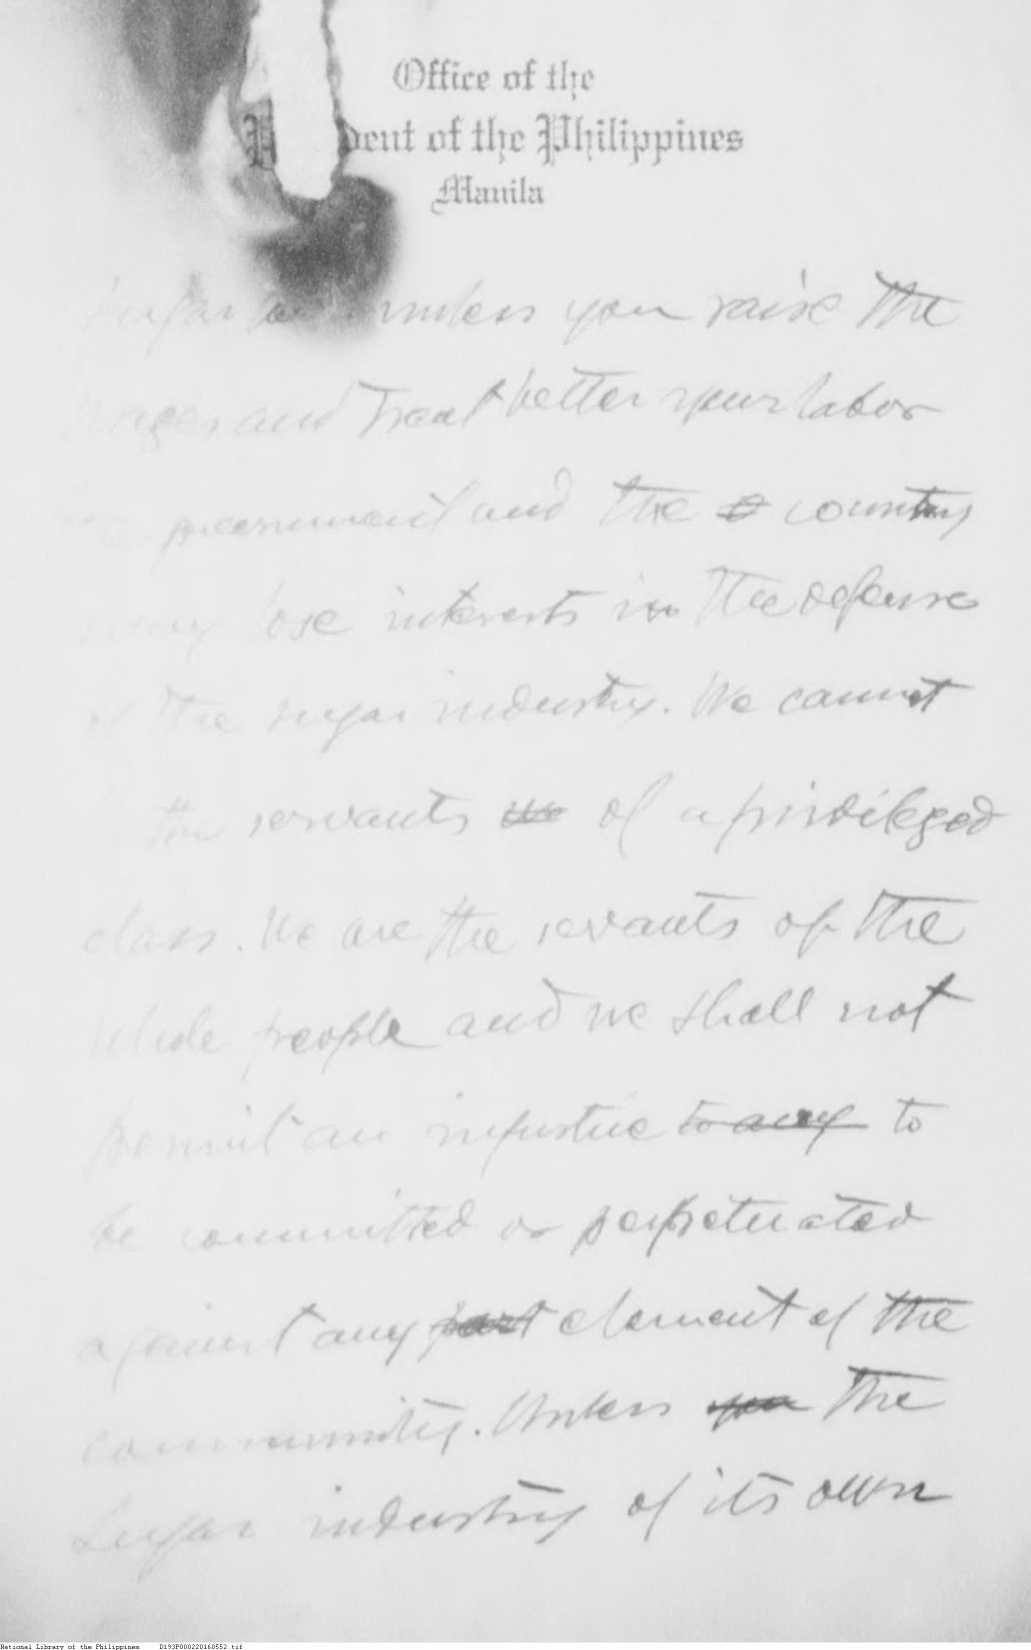 Office of the
President of the Philippines
Manila
Sugar unless you raise the
wages and treat better your labor
government and the country
may lose interests in the defense
of the sugar industry. We cannot
the servants of a privileged
class. We are the servants of the
whole people and we shall not
permit an injustice to any to
be committed or perpetuated
against any part element of the
community. Unless you the
Sugar industry of its own
National Library of the Philippines D193P000220160552.tif